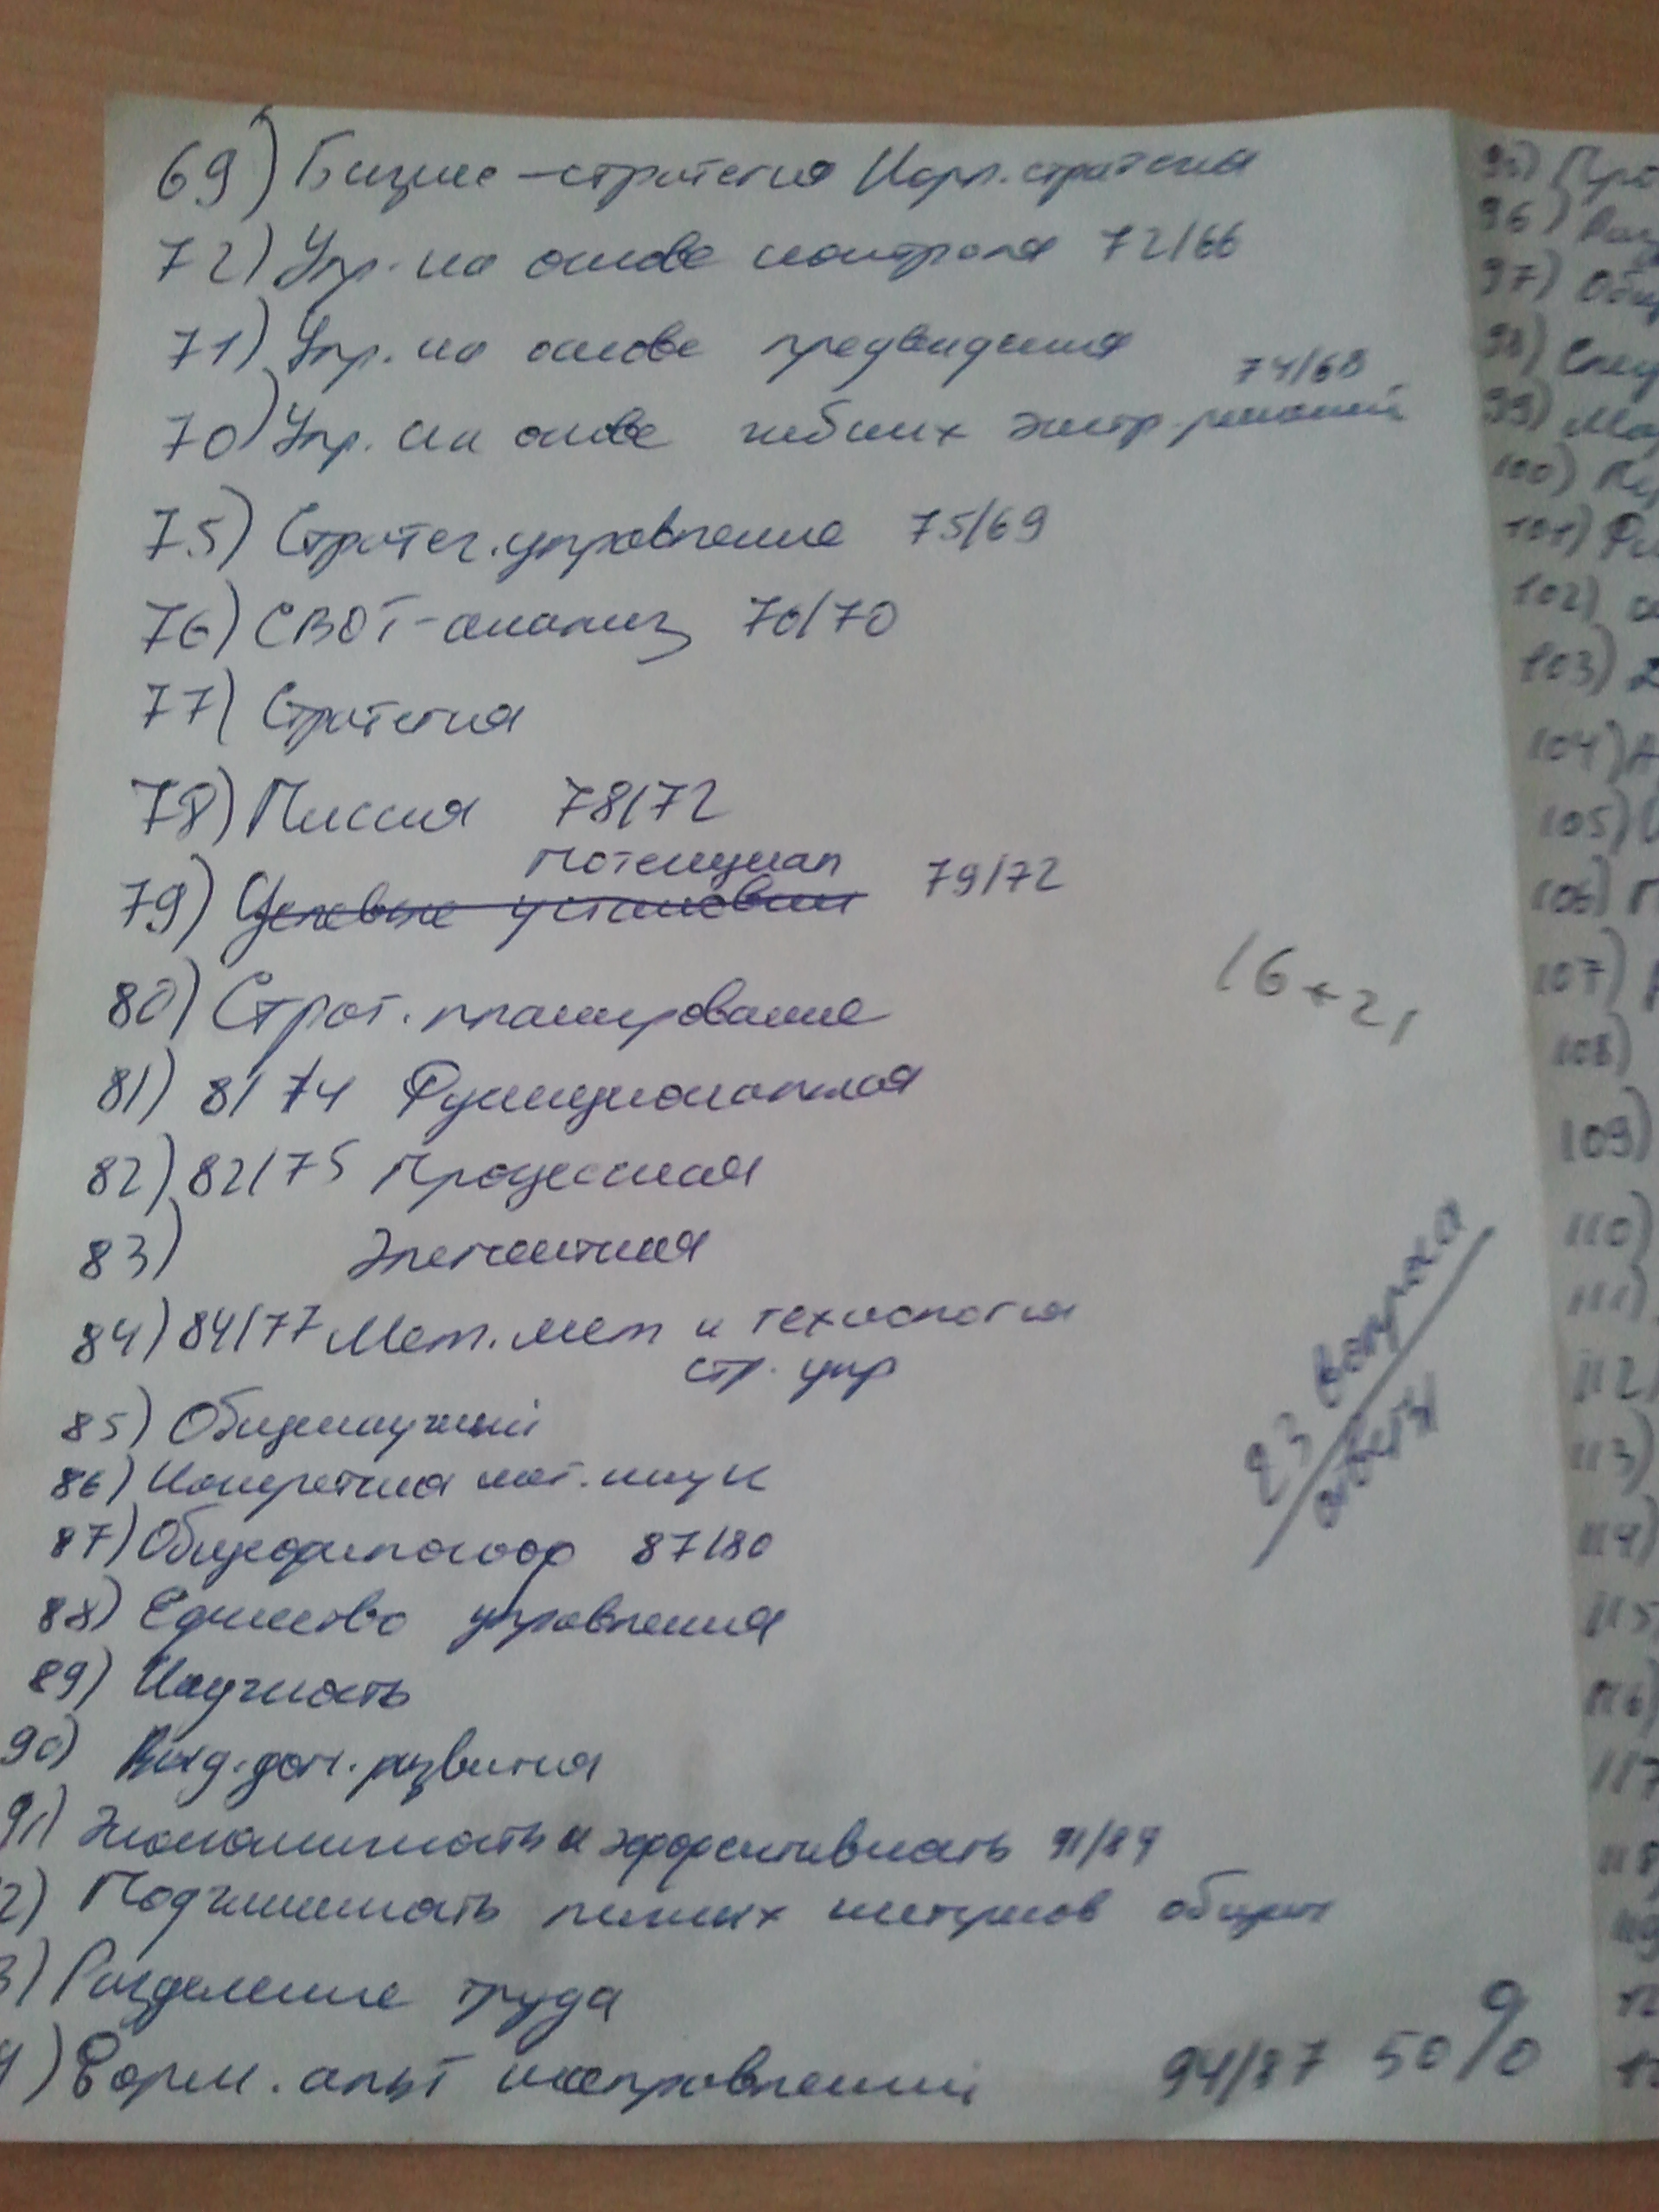 69) Бизнес-стратегия Корп. стратегия
72) Упр. на основе контроля 72/66
71) Упр. на основе предвидения
74/68
70) Упр. на основе гибких экстр. решений
75) Стратег. управление 75/69
76) СВОТ-анализ 76/70
77) Стратегия
78) Миссия 78/72
Потенциал
79) Целевые установки 79/72
80) Страт. планирование
16+21
81) 81 74 Функциональная
82) 82/75 Процессная
83) Элементная
84) 84/77 Мет. мет и технология
стр. упр
85) Общенаучный
86) Конкретная мет. наук
87) Общефилософ 87/80
88) Единство управления
89) Научность
90) развития
91) Экономичность и эффективность 91/84
2) Подчиненность личных интересов общим
3) Разделение труда
4) Форм. опыт направлений 94/87 50%
23 вопроса
ответы
95) Про
96) Раз
97) Общ
98) Спец
99)
100)
101)
102)
103)
104) А
105)
106) П
107)
108)
109)
110)
111)
112)
113)
114)
115
116)
117
118
119
12
12